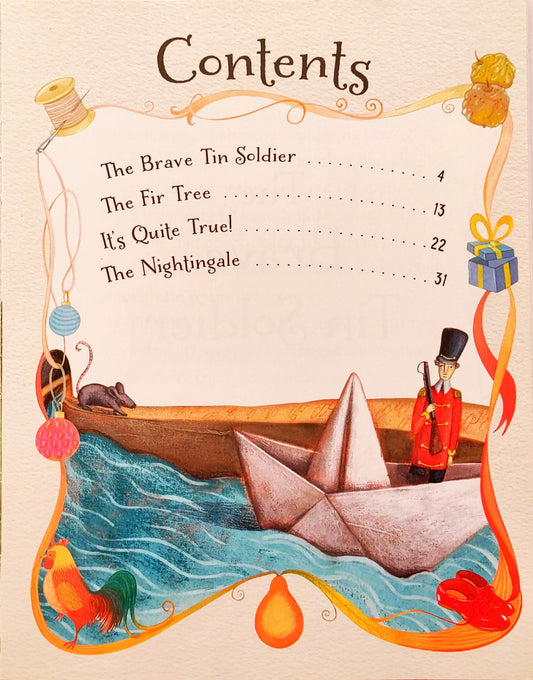 Contents
The Brave Tin Soldier . . . . . . . . . . . . 4
The Fir Tree . . . . . . . . . . . . . . . . . . . . . 13
It's Quite True! . . . . . . . . . . . . . . . . . . 22
The Nightingale . . . . . . . . . . . . . . . . . . 31